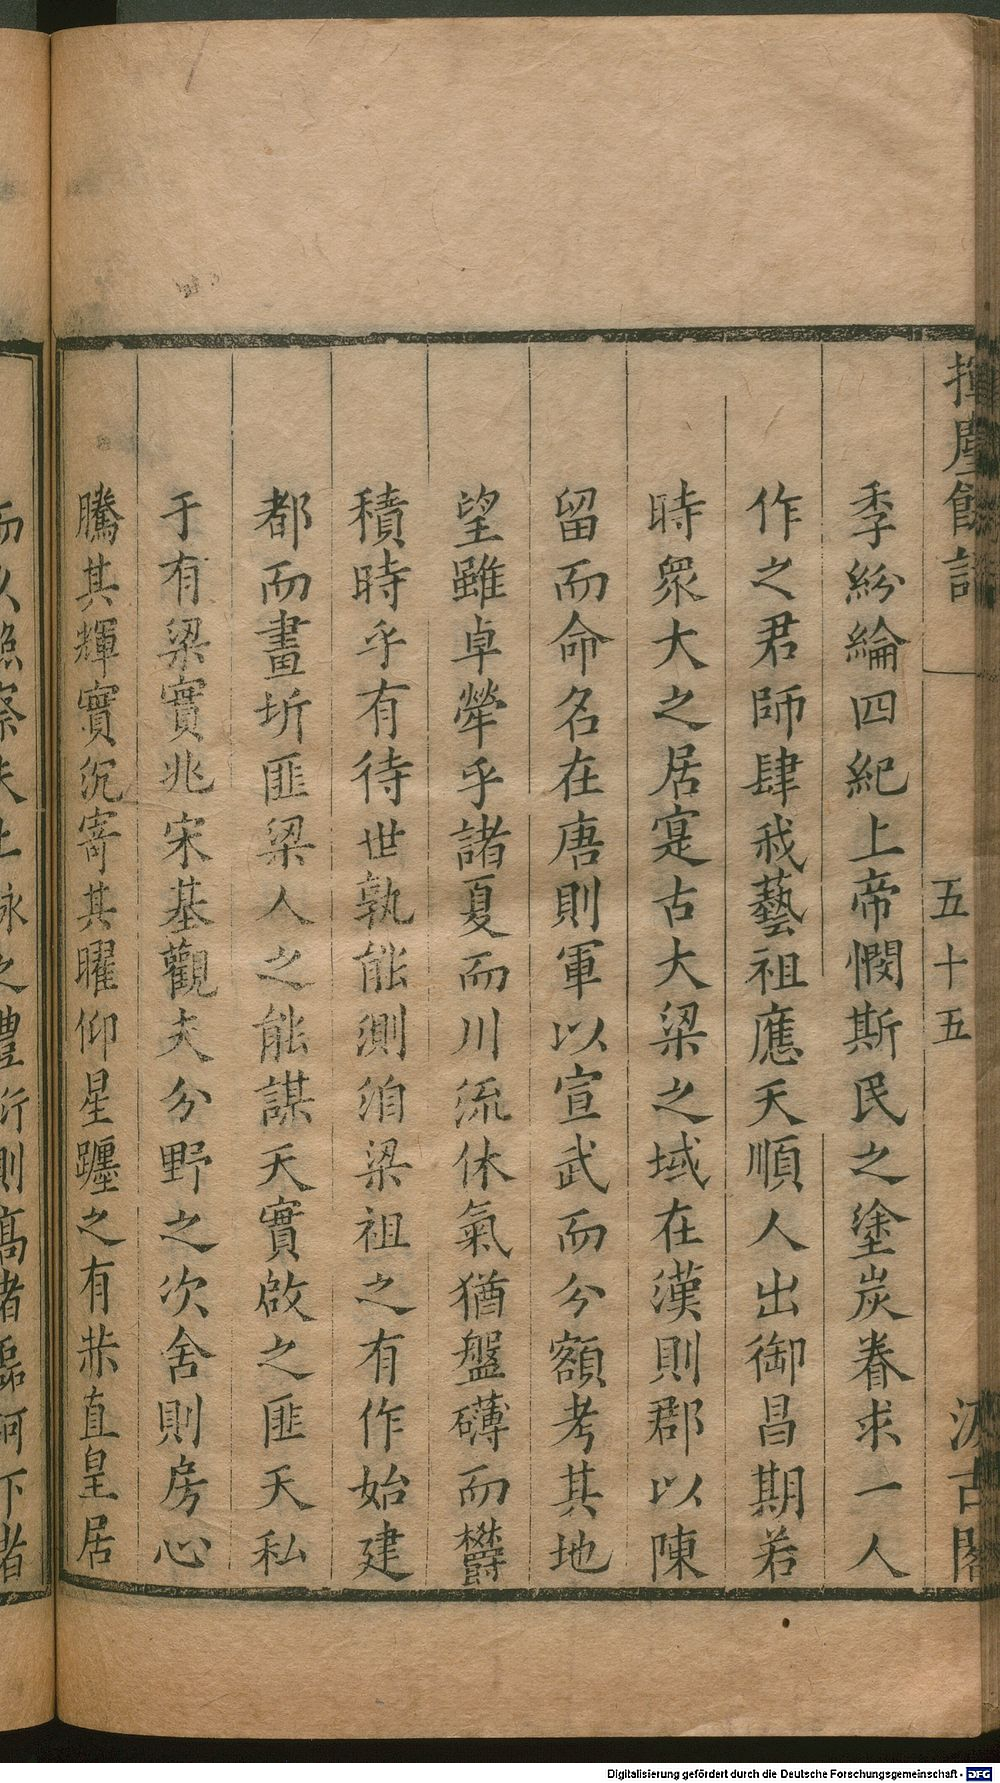 揮麈餘話
五十五
汲古閣
季紛綸四紀上帝憫斯民之塗炭眷求一人
作之君師肆我藝祖應天順人出御昌期若
時衆大之居寔古大梁之域在漢則郡以陳
留而命名在唐則軍以宣武而分額考其地
望雖卓犖乎諸夏而川流休氣猶盤礴而欝
積時乎有待世孰能測洎梁祖之有作始建
都而畫圻匪梁人之能謀天實啟之匪天私
于有梁實兆宋基觀夫分野之次舍則房心
騰其輝實沉寄其曜仰星躔之有赫直皇居
Digitalisierung gefördert durch die Deutsche Forschungsgemeinschaft - DFG